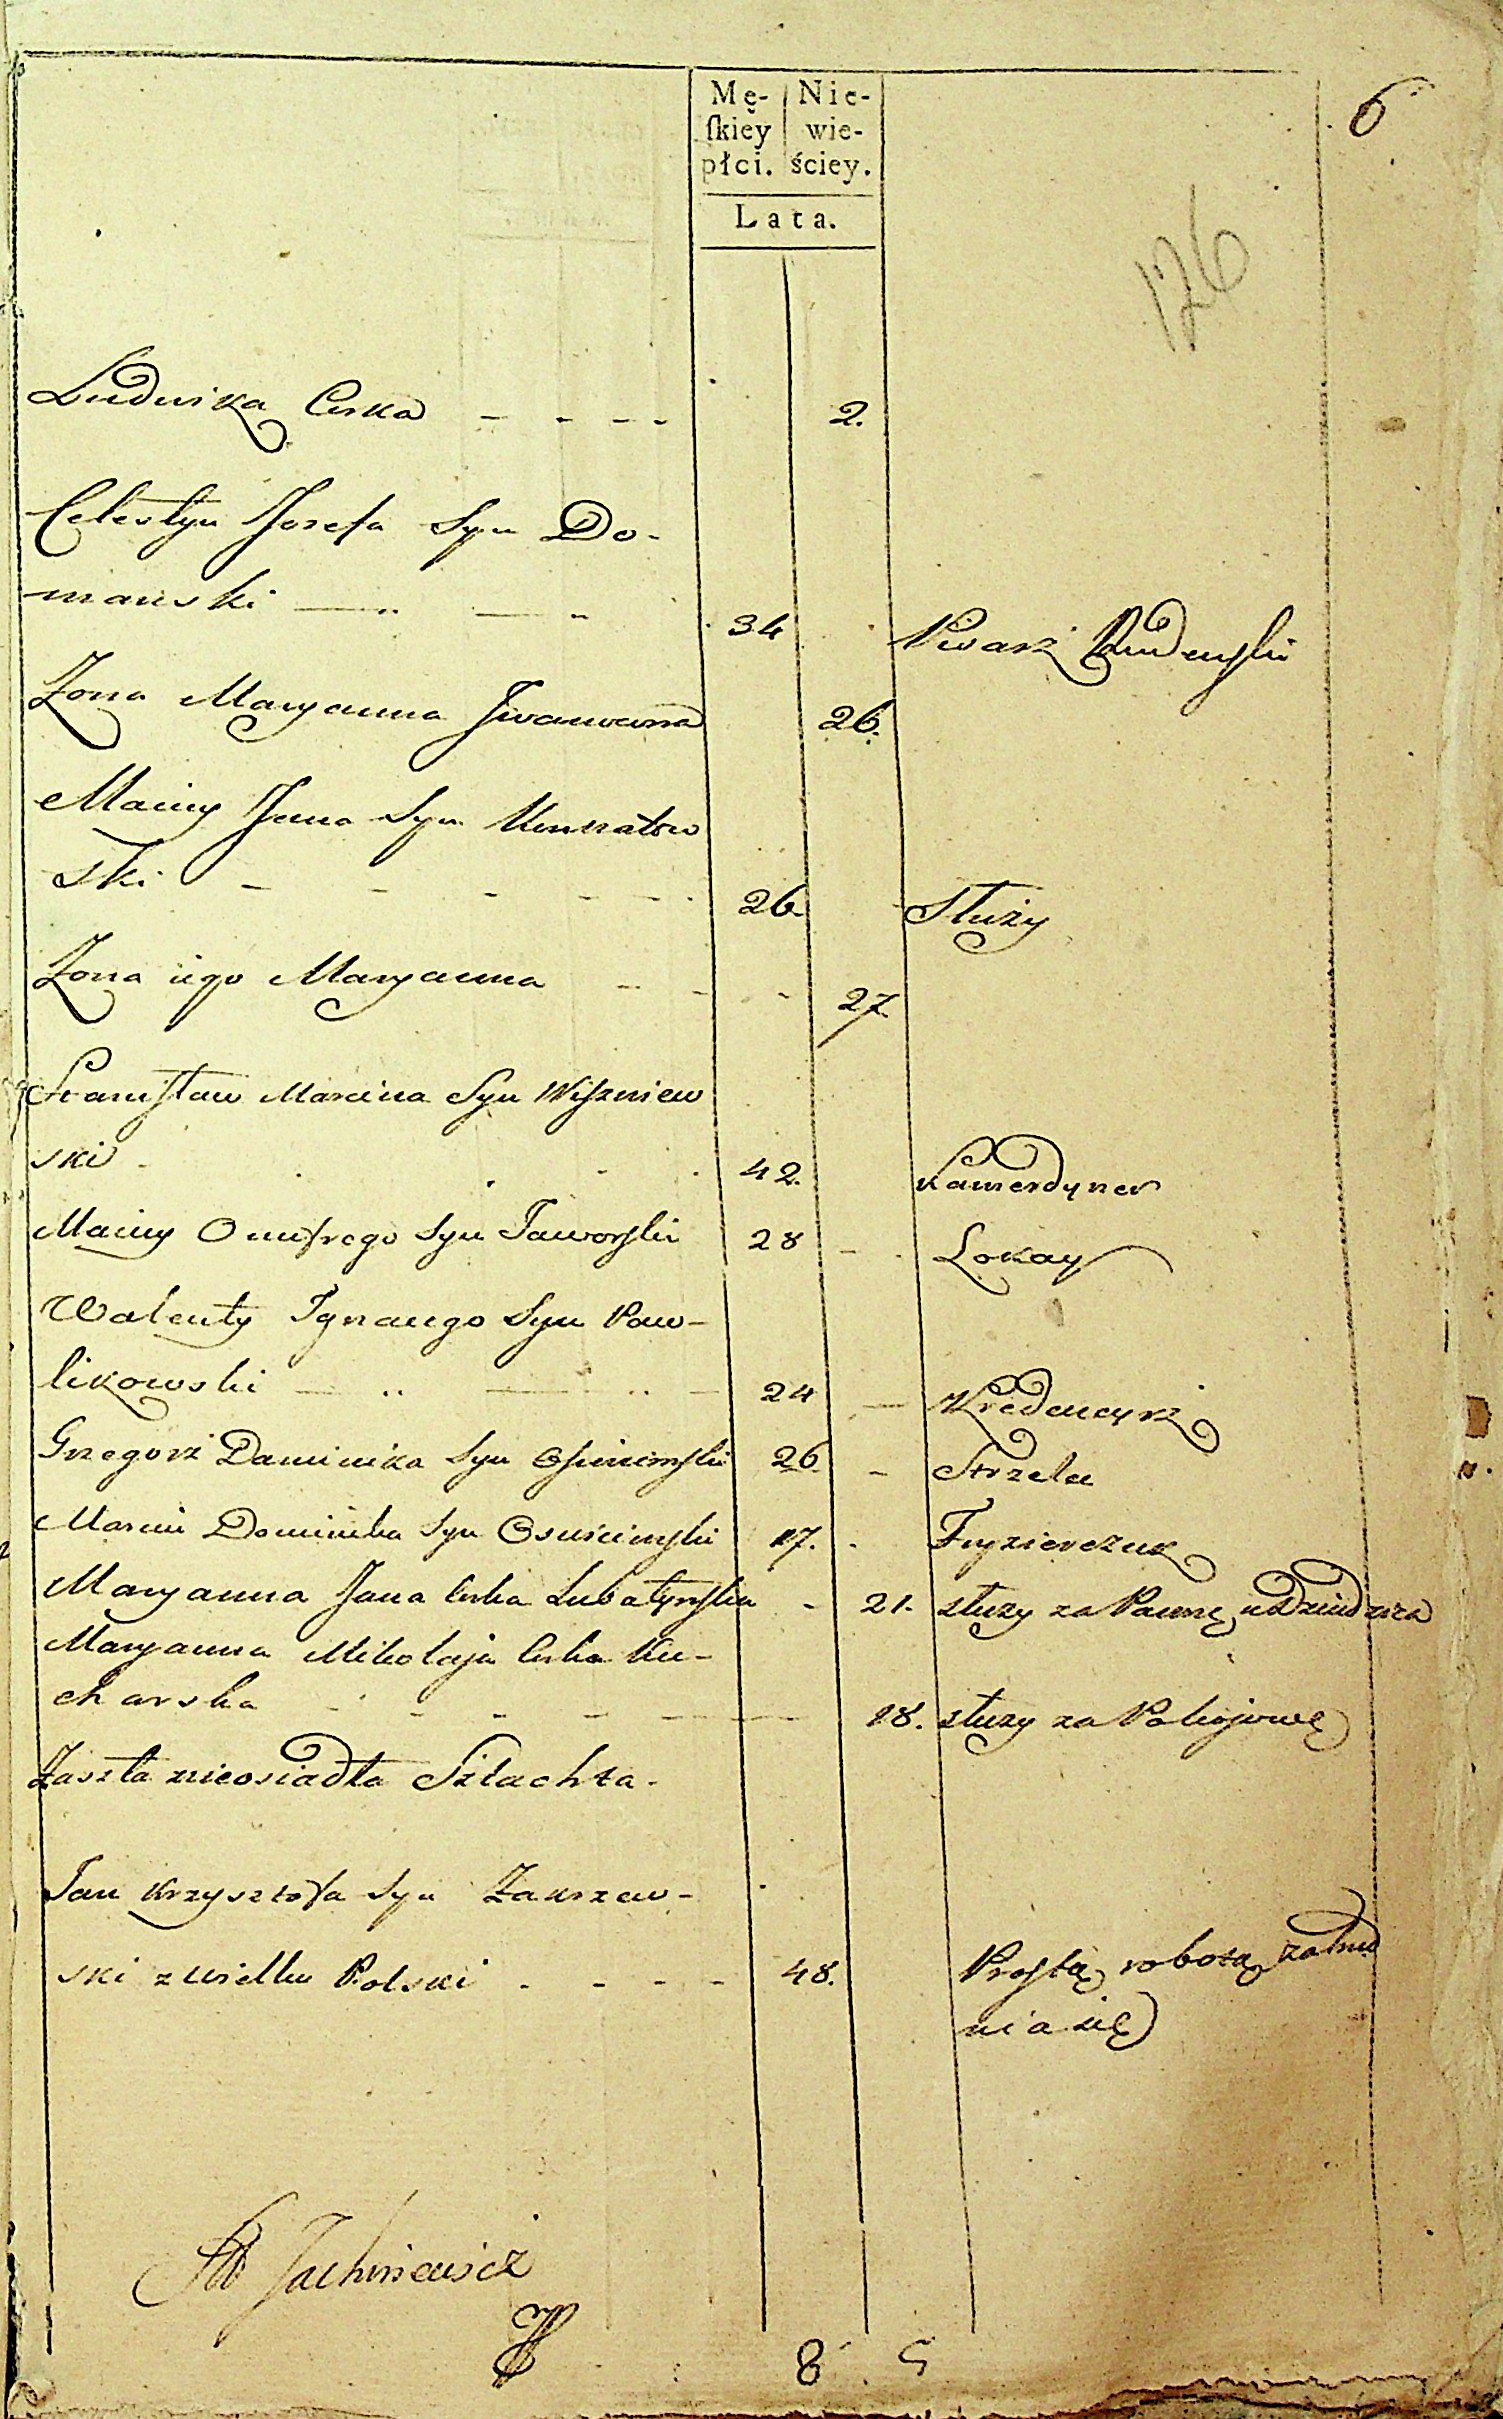 Mę- Nie-
ſkiey wie-
płci. ściey.
Lata.
6
126
Ludwika Curka - - - - 2.
Celestyn Jozefa Syn Do-
manski 34 Piwarz
Zona Maryanna Iwanowna 26.
Maciey Jana Syn
ski - - - - - 26. Służy
Zona iego Maryanna - - - 27.
Stanisław Marcina Syn Wiszniew
ski 42. Kamerdyner
Maciey Onufrego Syn Jaworski 28 - Lokay
Walenty Ignacego Syn Paw-
likowski 24 - Kredencyrz
Grzegorz Daminika Syn 26 - Strzelec
Marcin Dominika Syn 17. Fryzierczuk
Maryanna Jana Curka Lubatynska - 21. służy za Pannę u Dziedzica
Maryanna Mikołaja Curka Ku-
charska - - - - - 18. służy za Pokojowę
Zaszła nieosiadła Szlachta.
Jan Krzysztofa Syn Zakrzew-
ski z wielkie Polski - - - - 48. Prostą robotą zatrud
nia się
Jachniewicz
8 5